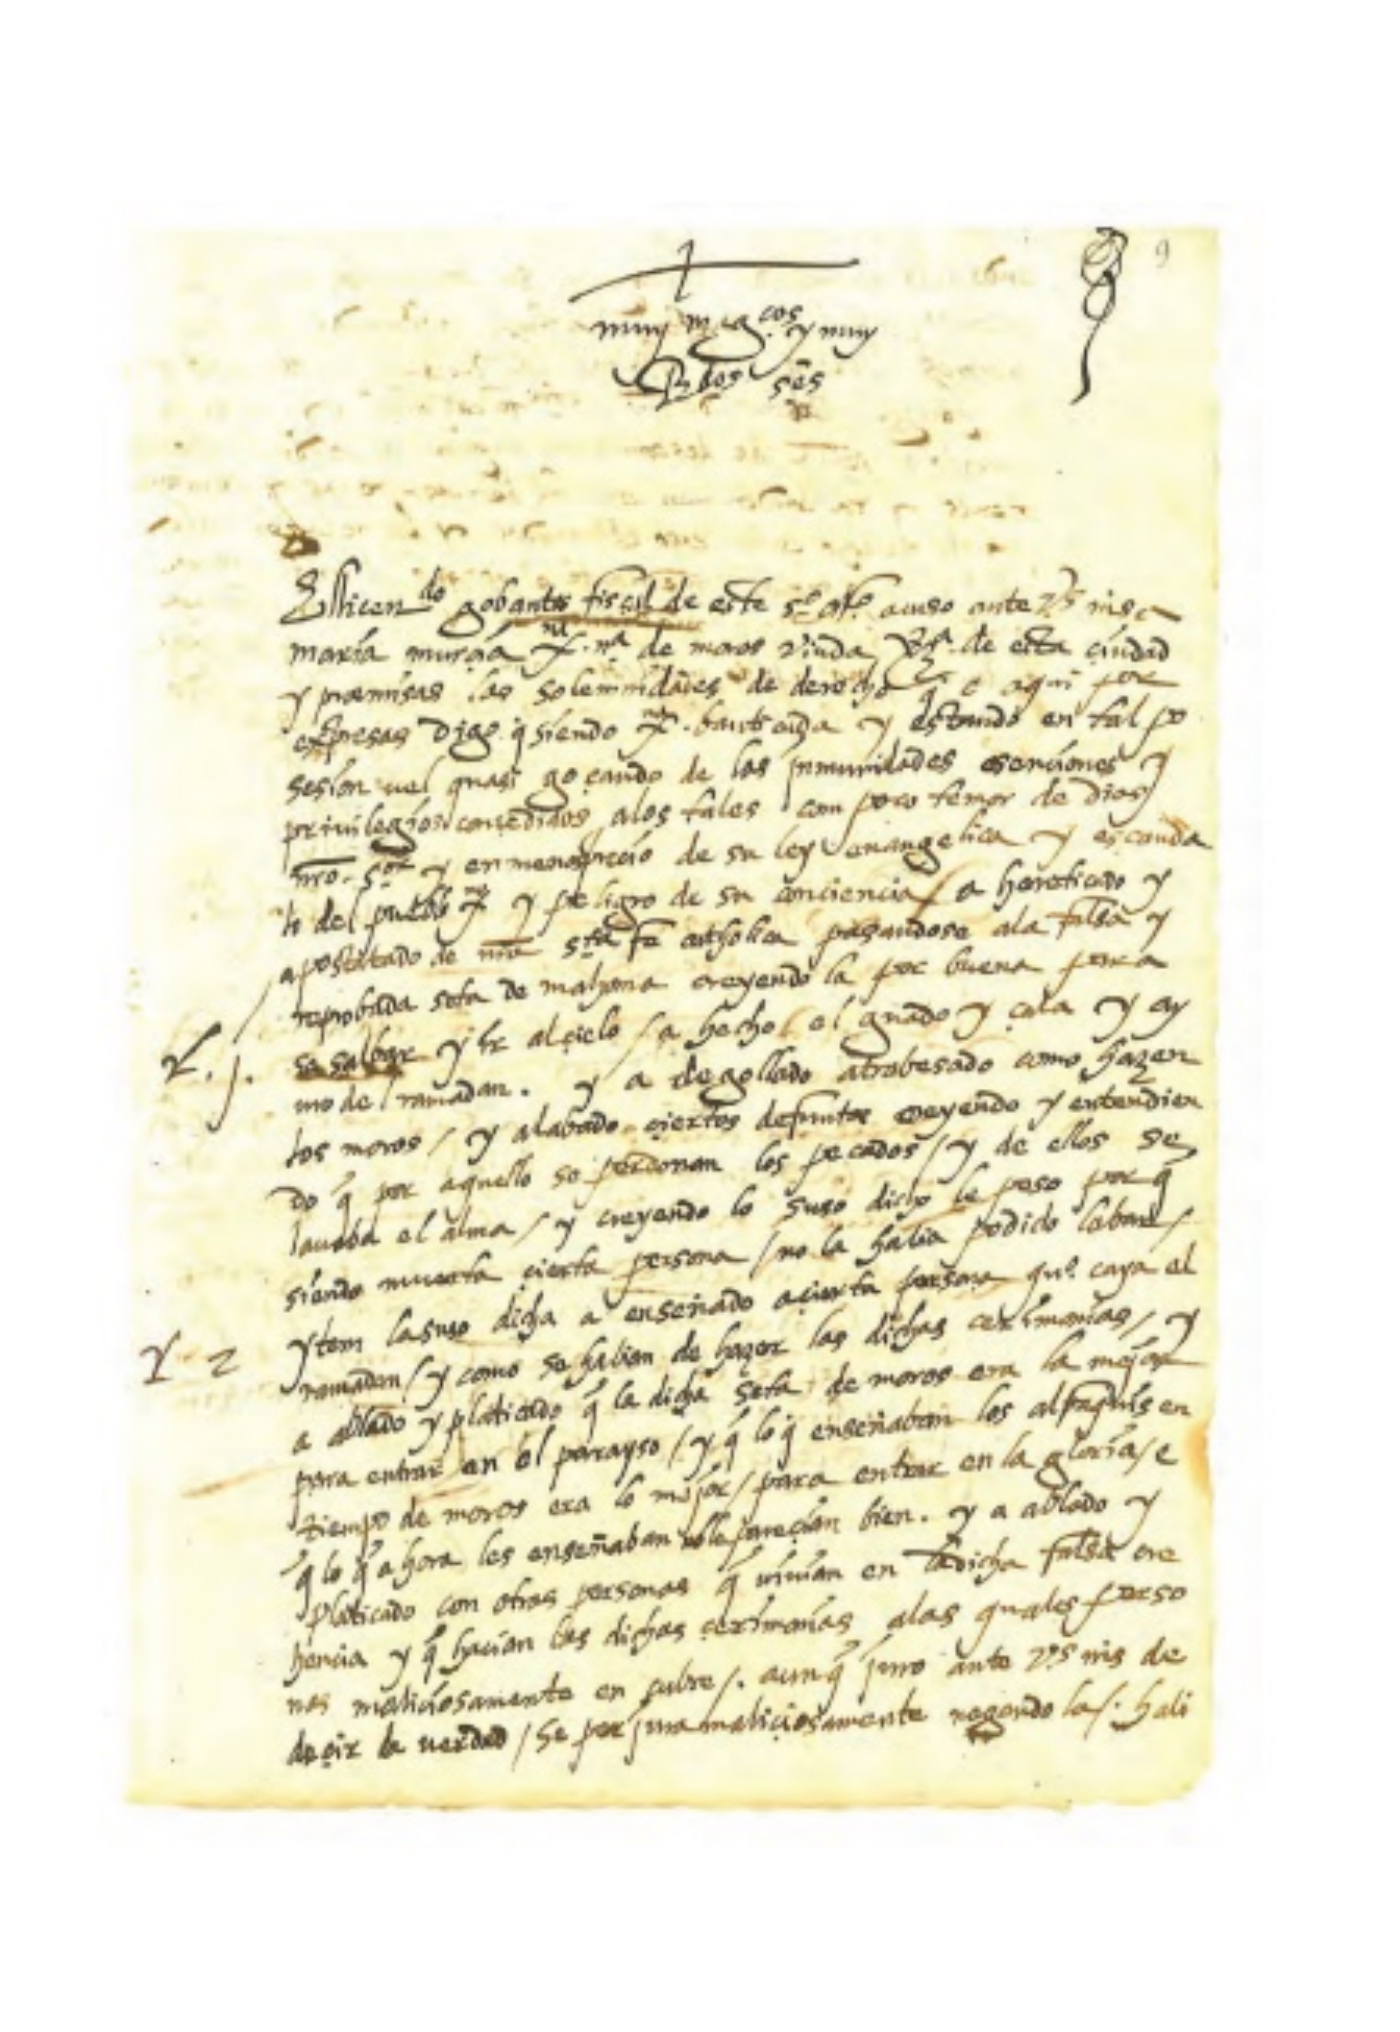 9
muy mag.cos y muy
Rdos ses
El licendo gobantes fiscal de este sto offo acuso ante Vs ms a
maría murcia xna na de moros viuda Va de esta ciudad
y premisas las solemnidades de derecho q e aqui por
expresas Digo q siendo xna bautiçada y estando en tal po
sesion vel quasi goçando de las inmunidades esenciones y
privilegios concedidos a los tales com poco temor de dios
nro sor y en menosprecio de su ley evangelica y escanda
lo del pueblo xno y peligro de su conciencia / a hereticado y
apostatado de nra sta fe catholica pasandose a la falsa y
reprobada seta de mahoma creyendo la por buena para
Y. j. se salbar y ir al çielo / a hecho el guado y çala y ay
uno del ramadan. y a degollado atrabesado como hazen
los moros / y alabado çiertos defuntos creyendo y entendien
do q por aquello se perdonan los pecados / y de ellos se
lauaba el alma / y creyendo lo suso dicho le peso por q
siendo muerta çierta persona / no la habia podido labar /
Y 2 ytem la suso dicha a enseñado a çierta persona que caya el
ramadan / y como se habian de hazer las dichas cerimonias / y
a ablado y platicado q la dicha seta de moros era la mejor
para entrar en el parayso / y q lo q enseñaban los alfaquis en
tiempo de moros era lo mejor / para entrar en la gloria / e
q lo q ahora les enseñaban no le pareçian bien. y a ablado y
platicado con otras personas q uiuian en la dicha falsa cre
hencia y q hacian las dichas çerimonias a las quales perso
nas maliciosamente encubre /. aunq juro ante Vs ms de
deçir la uerdad / se perjura maliçiosamente negando la /. hali